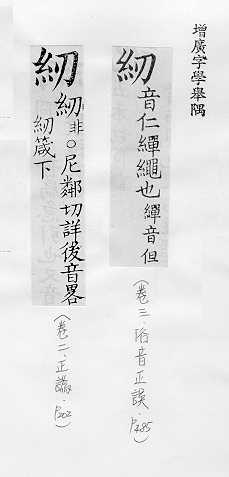 增廣字學舉隅
紉
音仁繟繩也繟音但
（卷三．俗音正誤．P485）
紉
紉非○尼鄰切詳後音畧
紉箴下
（卷二．正譌．P202）